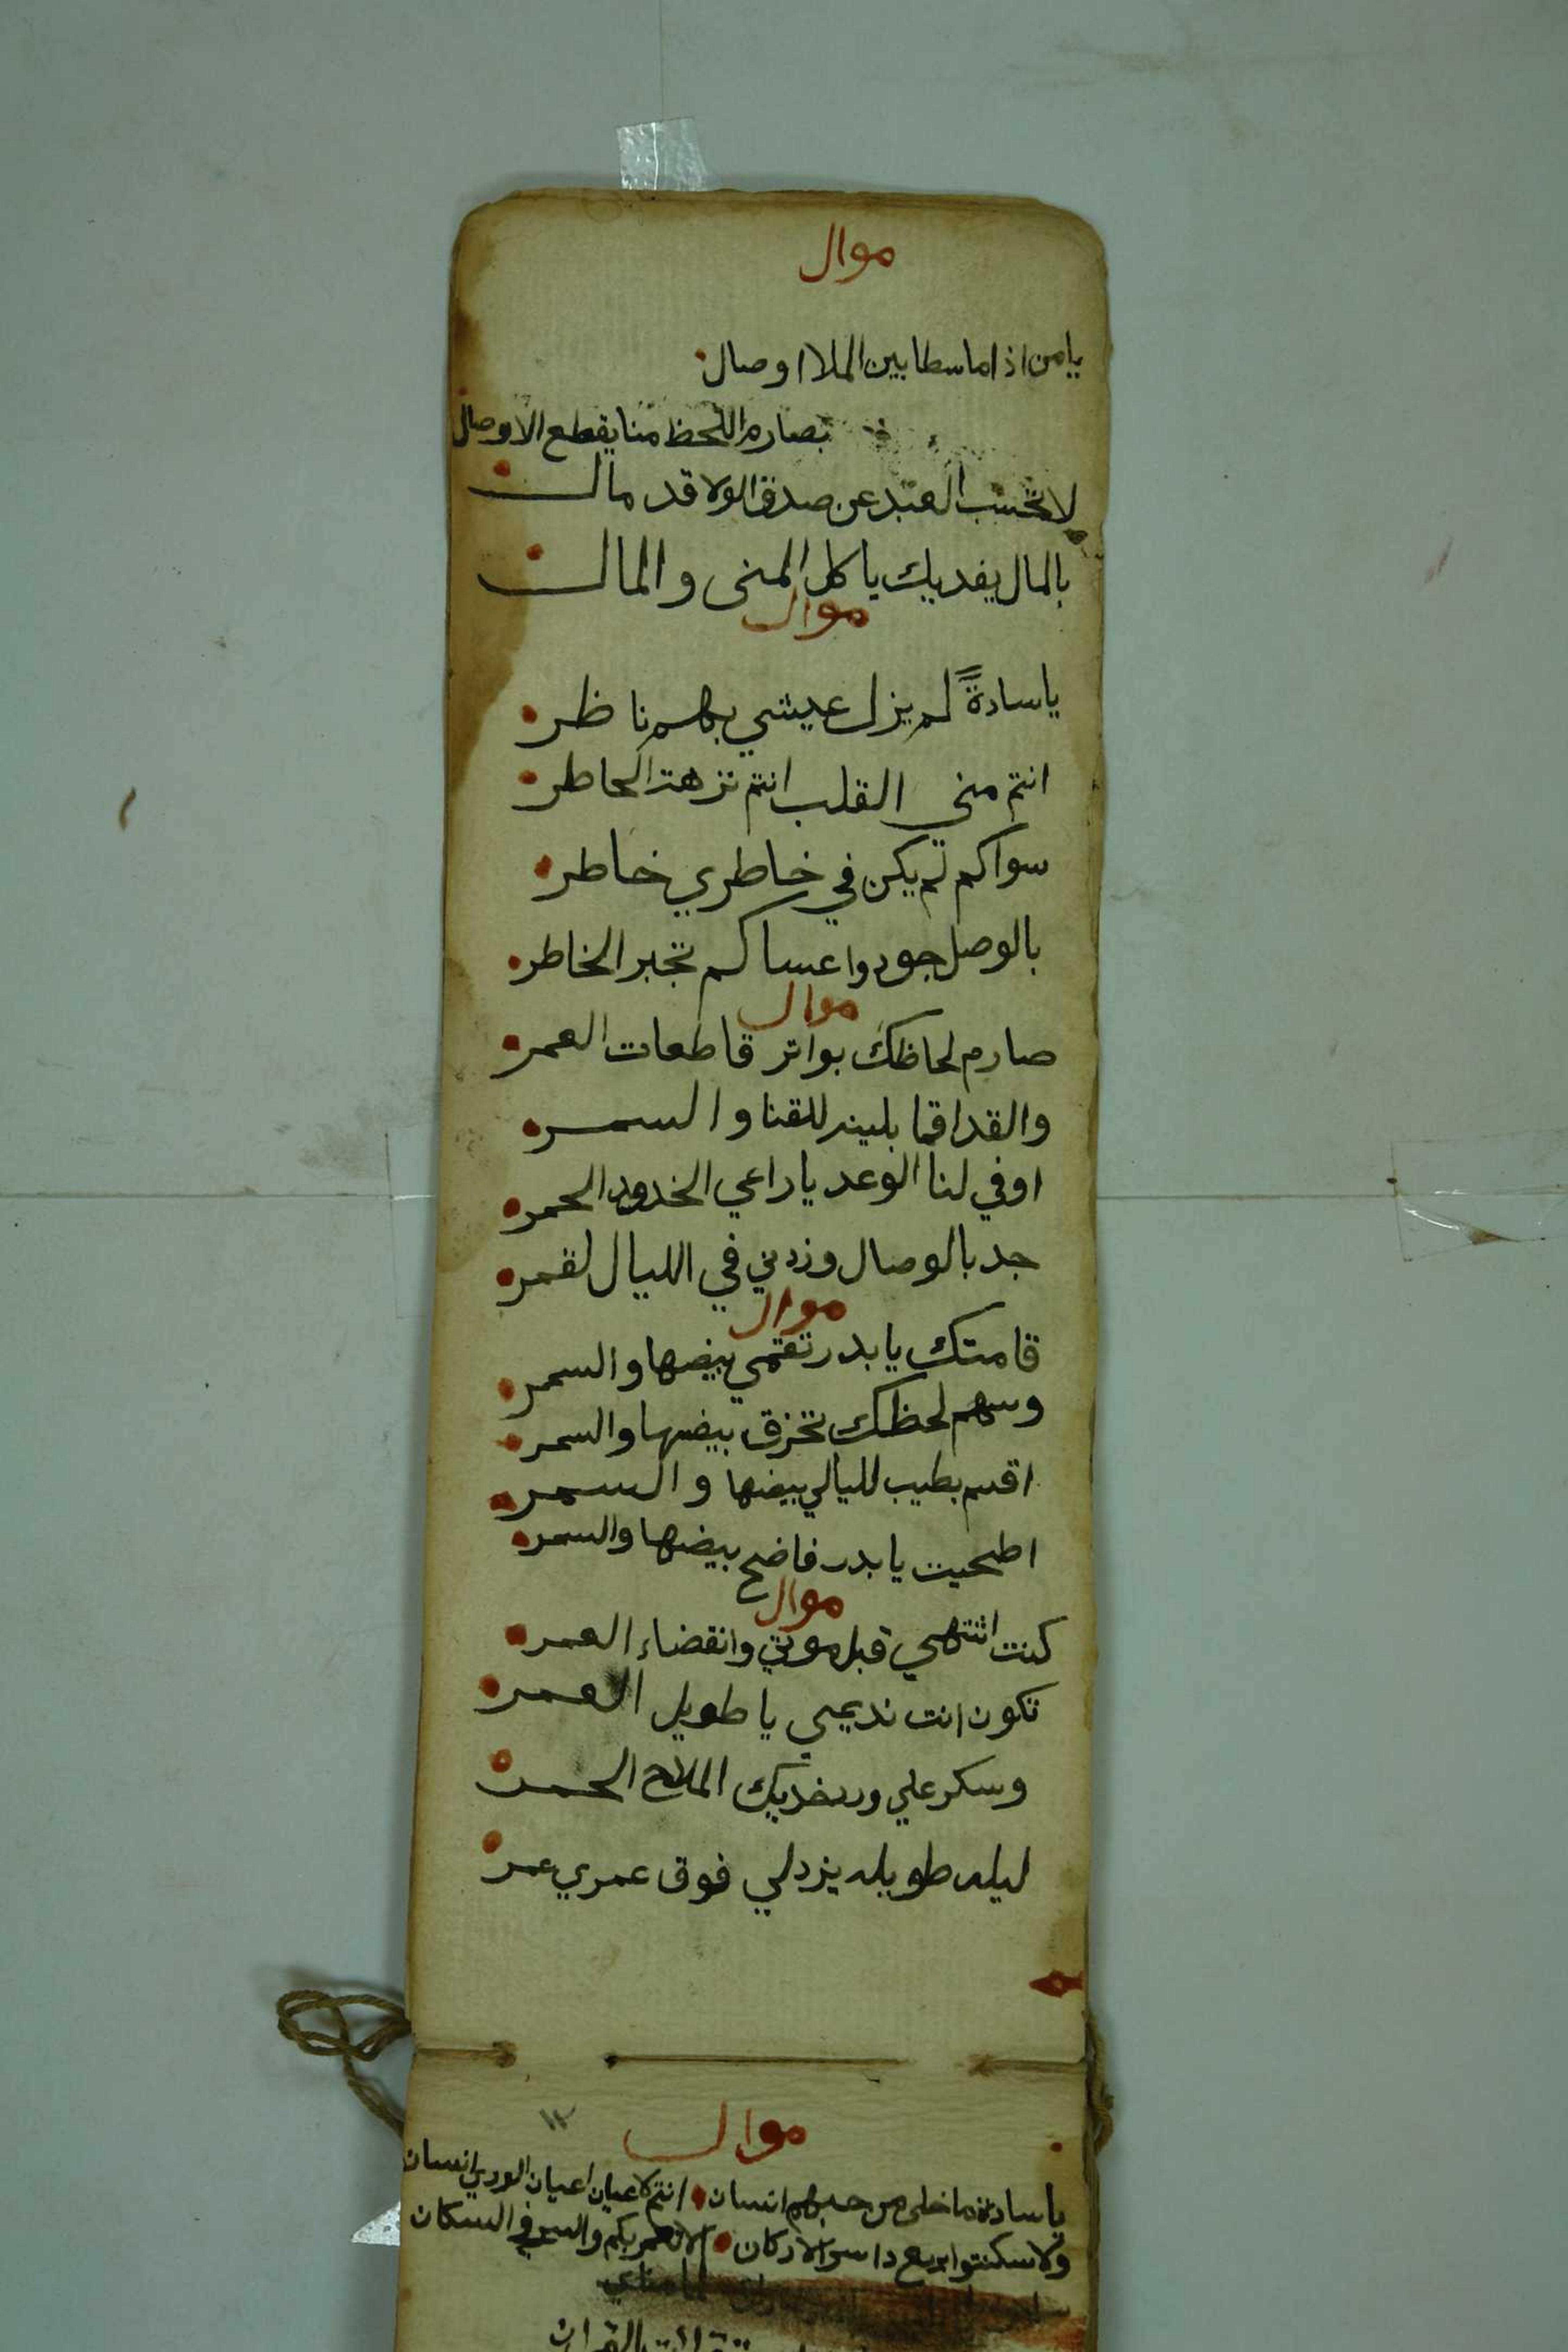 موال
يا من اذا ما سطا بين الملا اوصال
بصارم اللحظ منا يقطع الاوصال
لا تحسب العبد عن صدق الولا قد مال
بالمال يفديك يا كل المنى والمال
موال
يا سادةً لم يزل عيشي بهم ناظر
انتم منى القلب انتم نزهة الخاطر
سواكم لم يكن في خاطري خاطر
بالوصل جودوا عساكم تجبر الخاطر
موال
صارم لحاظك بواتر قاطعات العمر
والقد اقما بلينه للقنا والسمر
اوفي لنا الوعد يا راعي الخدود الحمر
جد بالوصال وزدني في الليال لقمر
موال
قامتك يا بدر تقمي بيضها والسمر
وسهم لحظك تخزق بيضها والسمر
اقسم بطيب لليالي بيضها والسمر
اضحيت يا بدر فاضح بيضها والسمر
موال
كنت اشتهي قبل موتي وانقضاء العمر
تكون انت نديمي يا طويل العمر
وسكر علي ورد خديك الملاح الحمر
ليله طويله يزد لي فوق عمري عمر
١٢
موال
يا سادة ما خلى من حبهم انسان انتم لاعيان اعيان الورى انسان
ولا سكنتوا بربع دا سر الاركان الا تعمر بكم والسر في السكان